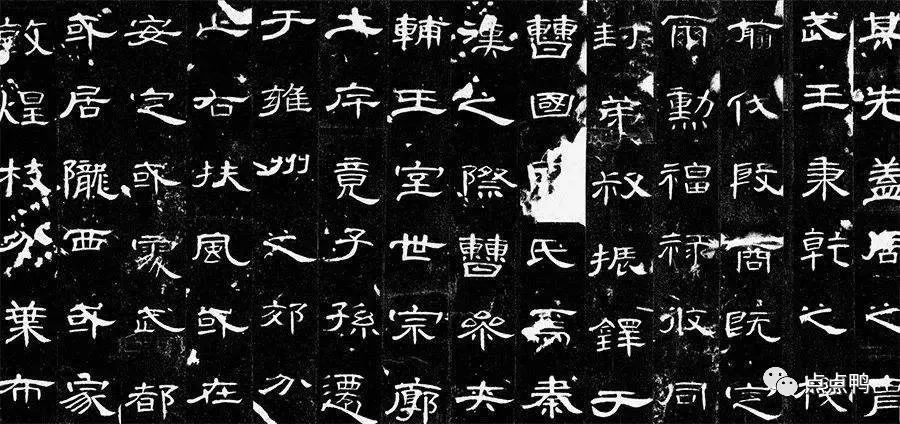 其先蓋周之胄
武王秉乾之機
翦伐殷商既定
爾勳福祿攸同
封弟叔振鐸于
曹國因氏焉秦
漢之際曹參夾
輔王室世宗廓
土斥竟子孫遷
于雍州之郊分
止右扶風或在
安定或處武都
或居隴西或家
敦煌枝分葉布
点点鸭